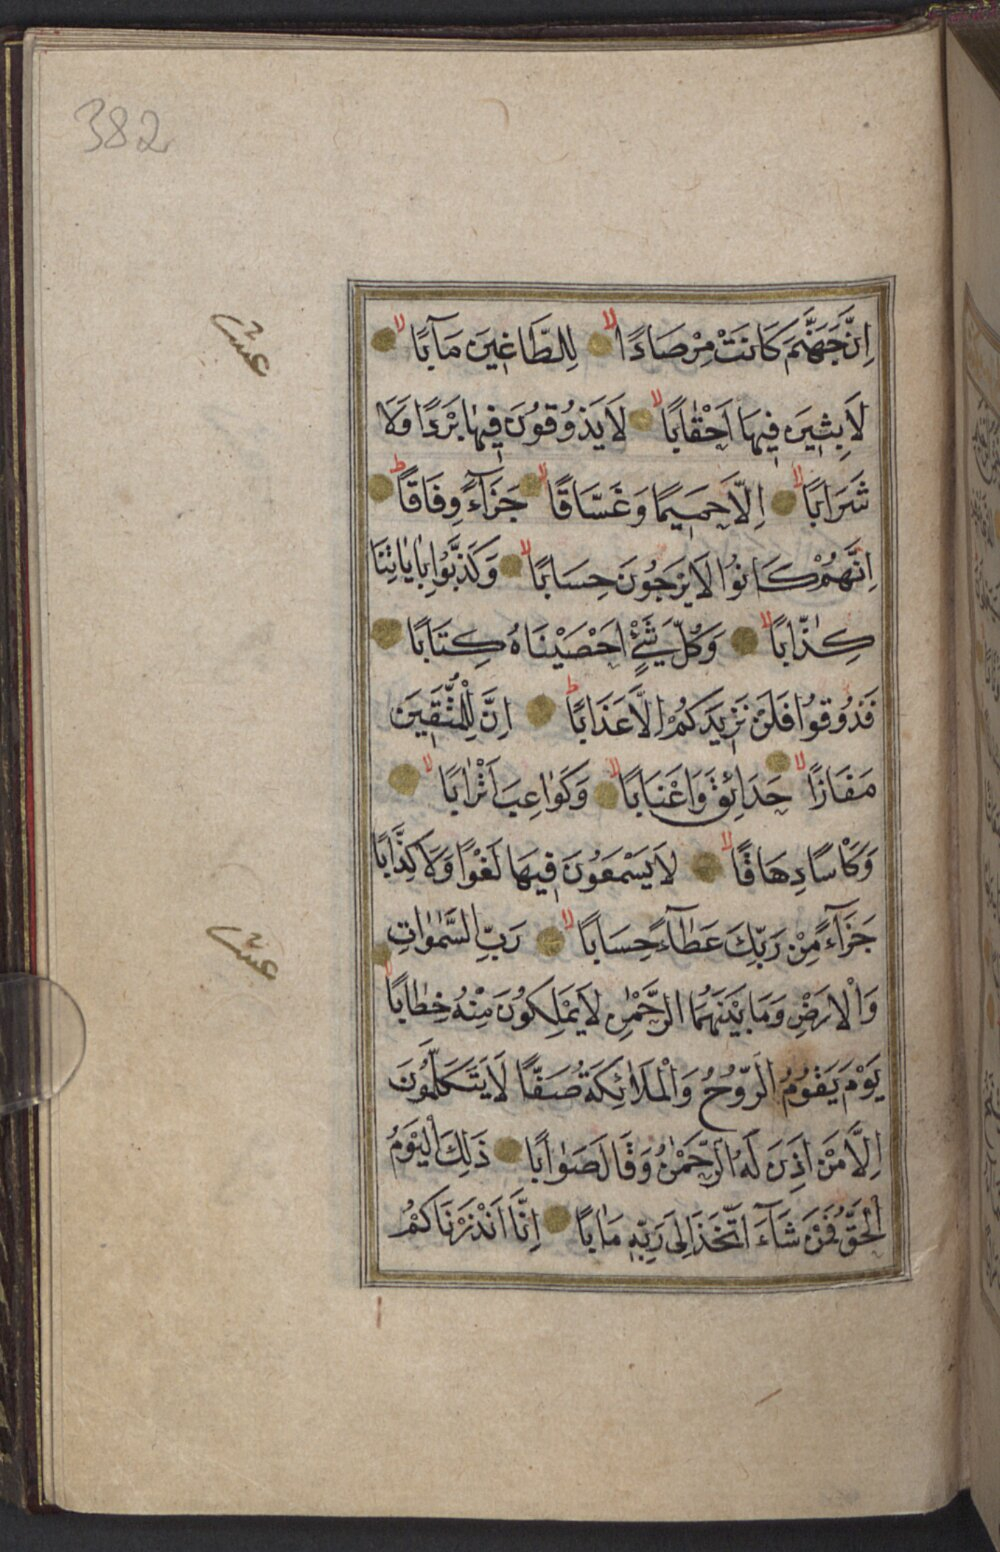 382
اِنَّ جَهَنَّمَ كَانَتْ مِرْصَادًا لا لِلطَّاغِينَ مَآبًا لا
عشر
لَابِثِينَ فِيهَا اَحْقَابًا لا لَا يَذُوقُونَ فِيهَا بَرْدًا وَلَا
شَرَابًا لا اِلَّا حَمِيمًا وَغَسَّاقًا لا جَزَآءً وِفَاقًا ط
اِنَّهُمْ كَانُوا لَا يَرْجُونَ حِسَابًا لا وَكَذَّبُوا بِاٰيَاتِنَا
كِذَّابًا لا وَكُلَّ شَيْءٍ اَحْصَيْنَاهُ كِتَابًا
فَذُوقُوا فَلَنْ نَزِيدَكُمْ اِلَّا عَذَابًا ط اِنَّ لِلْمُتَّقِينَ
مَفَازًا لا حَدَآئِقَ وَاَعْنَابًا لا وَكَوَاعِبَ اَتْرَابًا لا
وَكَاْسًا دِهَاقًا لا لَا يَسْمَعُونَ فِيهَا لَغْوًا وَلَا كِذَّابًا
جَزَآءً مِنْ رَبِّكَ عَطَآءً حِسَابًا لا رَبِّ السَّمٰوَاتِ
عشر
وَالْاَرْضِ وَمَا بَيْنَهُمَا الرَّحْمٰنِ لَا يَمْلِكُونَ مِنْهُ خِطَابًا
يَوْمَ يَقُومُ الرُّوحُ وَالْمَلَائِكَةُ صَفًّا لَا يَتَكَلَّمُونَ
اِلَّا مَنْ اَذِنَ لَهُ الرَّحْمٰنُ وَقَالَ صَوَابًا ذَلِكَ الْيَوْمُ
الْحَقُّ فَمَنْ شَآءَ اتَّخَذَ اِلَى رَبِّهِ مَاٰبًا اِنَّا اَنْذَرْنَاكُمْ